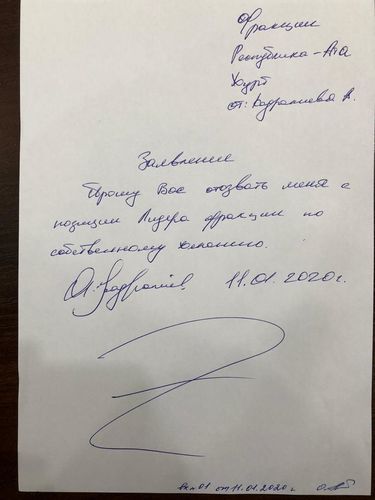 Фракции
Республика-Ата
Журт
от: Бадракиева А.
Заявление
Прошу Вас отозвать меня с
позиции Лидера фракции по
собственному желанию.
11.01.2020г.
вх.№01 от 11.01.2020г.